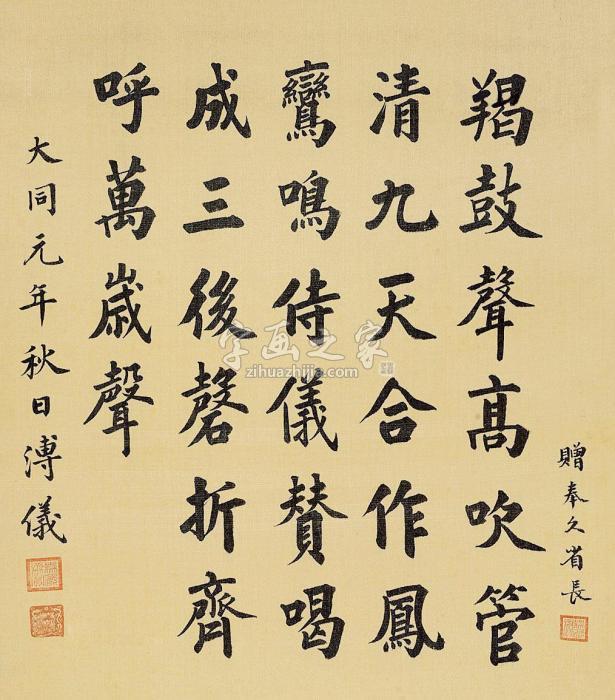 贈奉久省長
羯鼓聲高吹管
清九天合作鳳
鸞鳴侍儀賛喝
成三後磬折齊
呼萬歲聲
大同元年秋日溥儀
字画之家
zihuazhijia.com